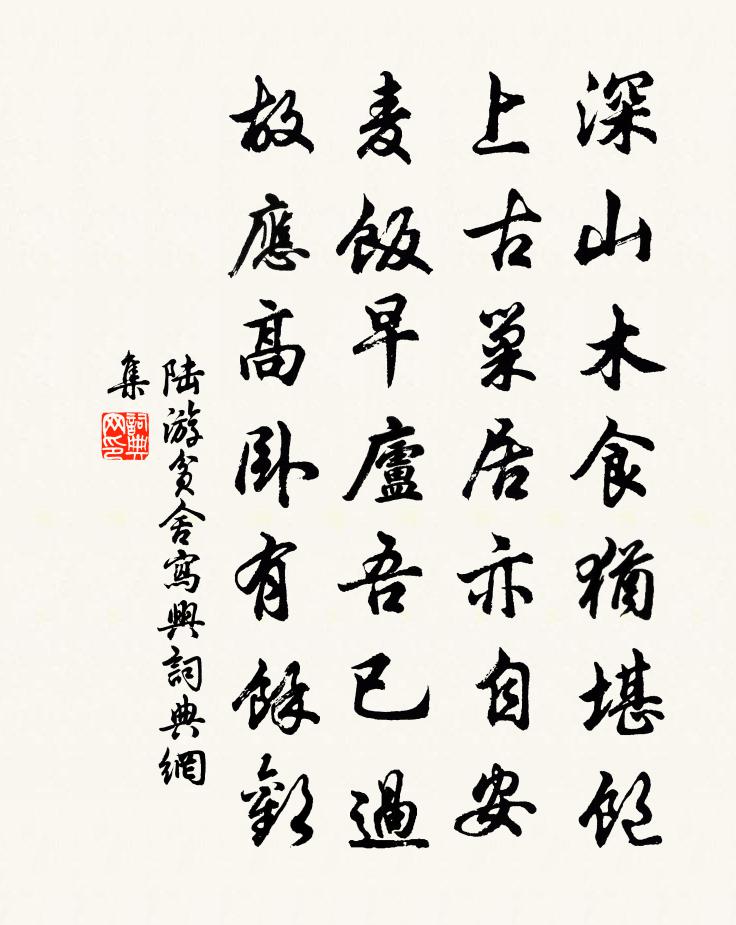 深山木食猶堪飽
上古巢居亦自安
麦飯早廬吾已過
故應高臥有餘歡
陸游貧舍寫興詞典網
集
詞典網印